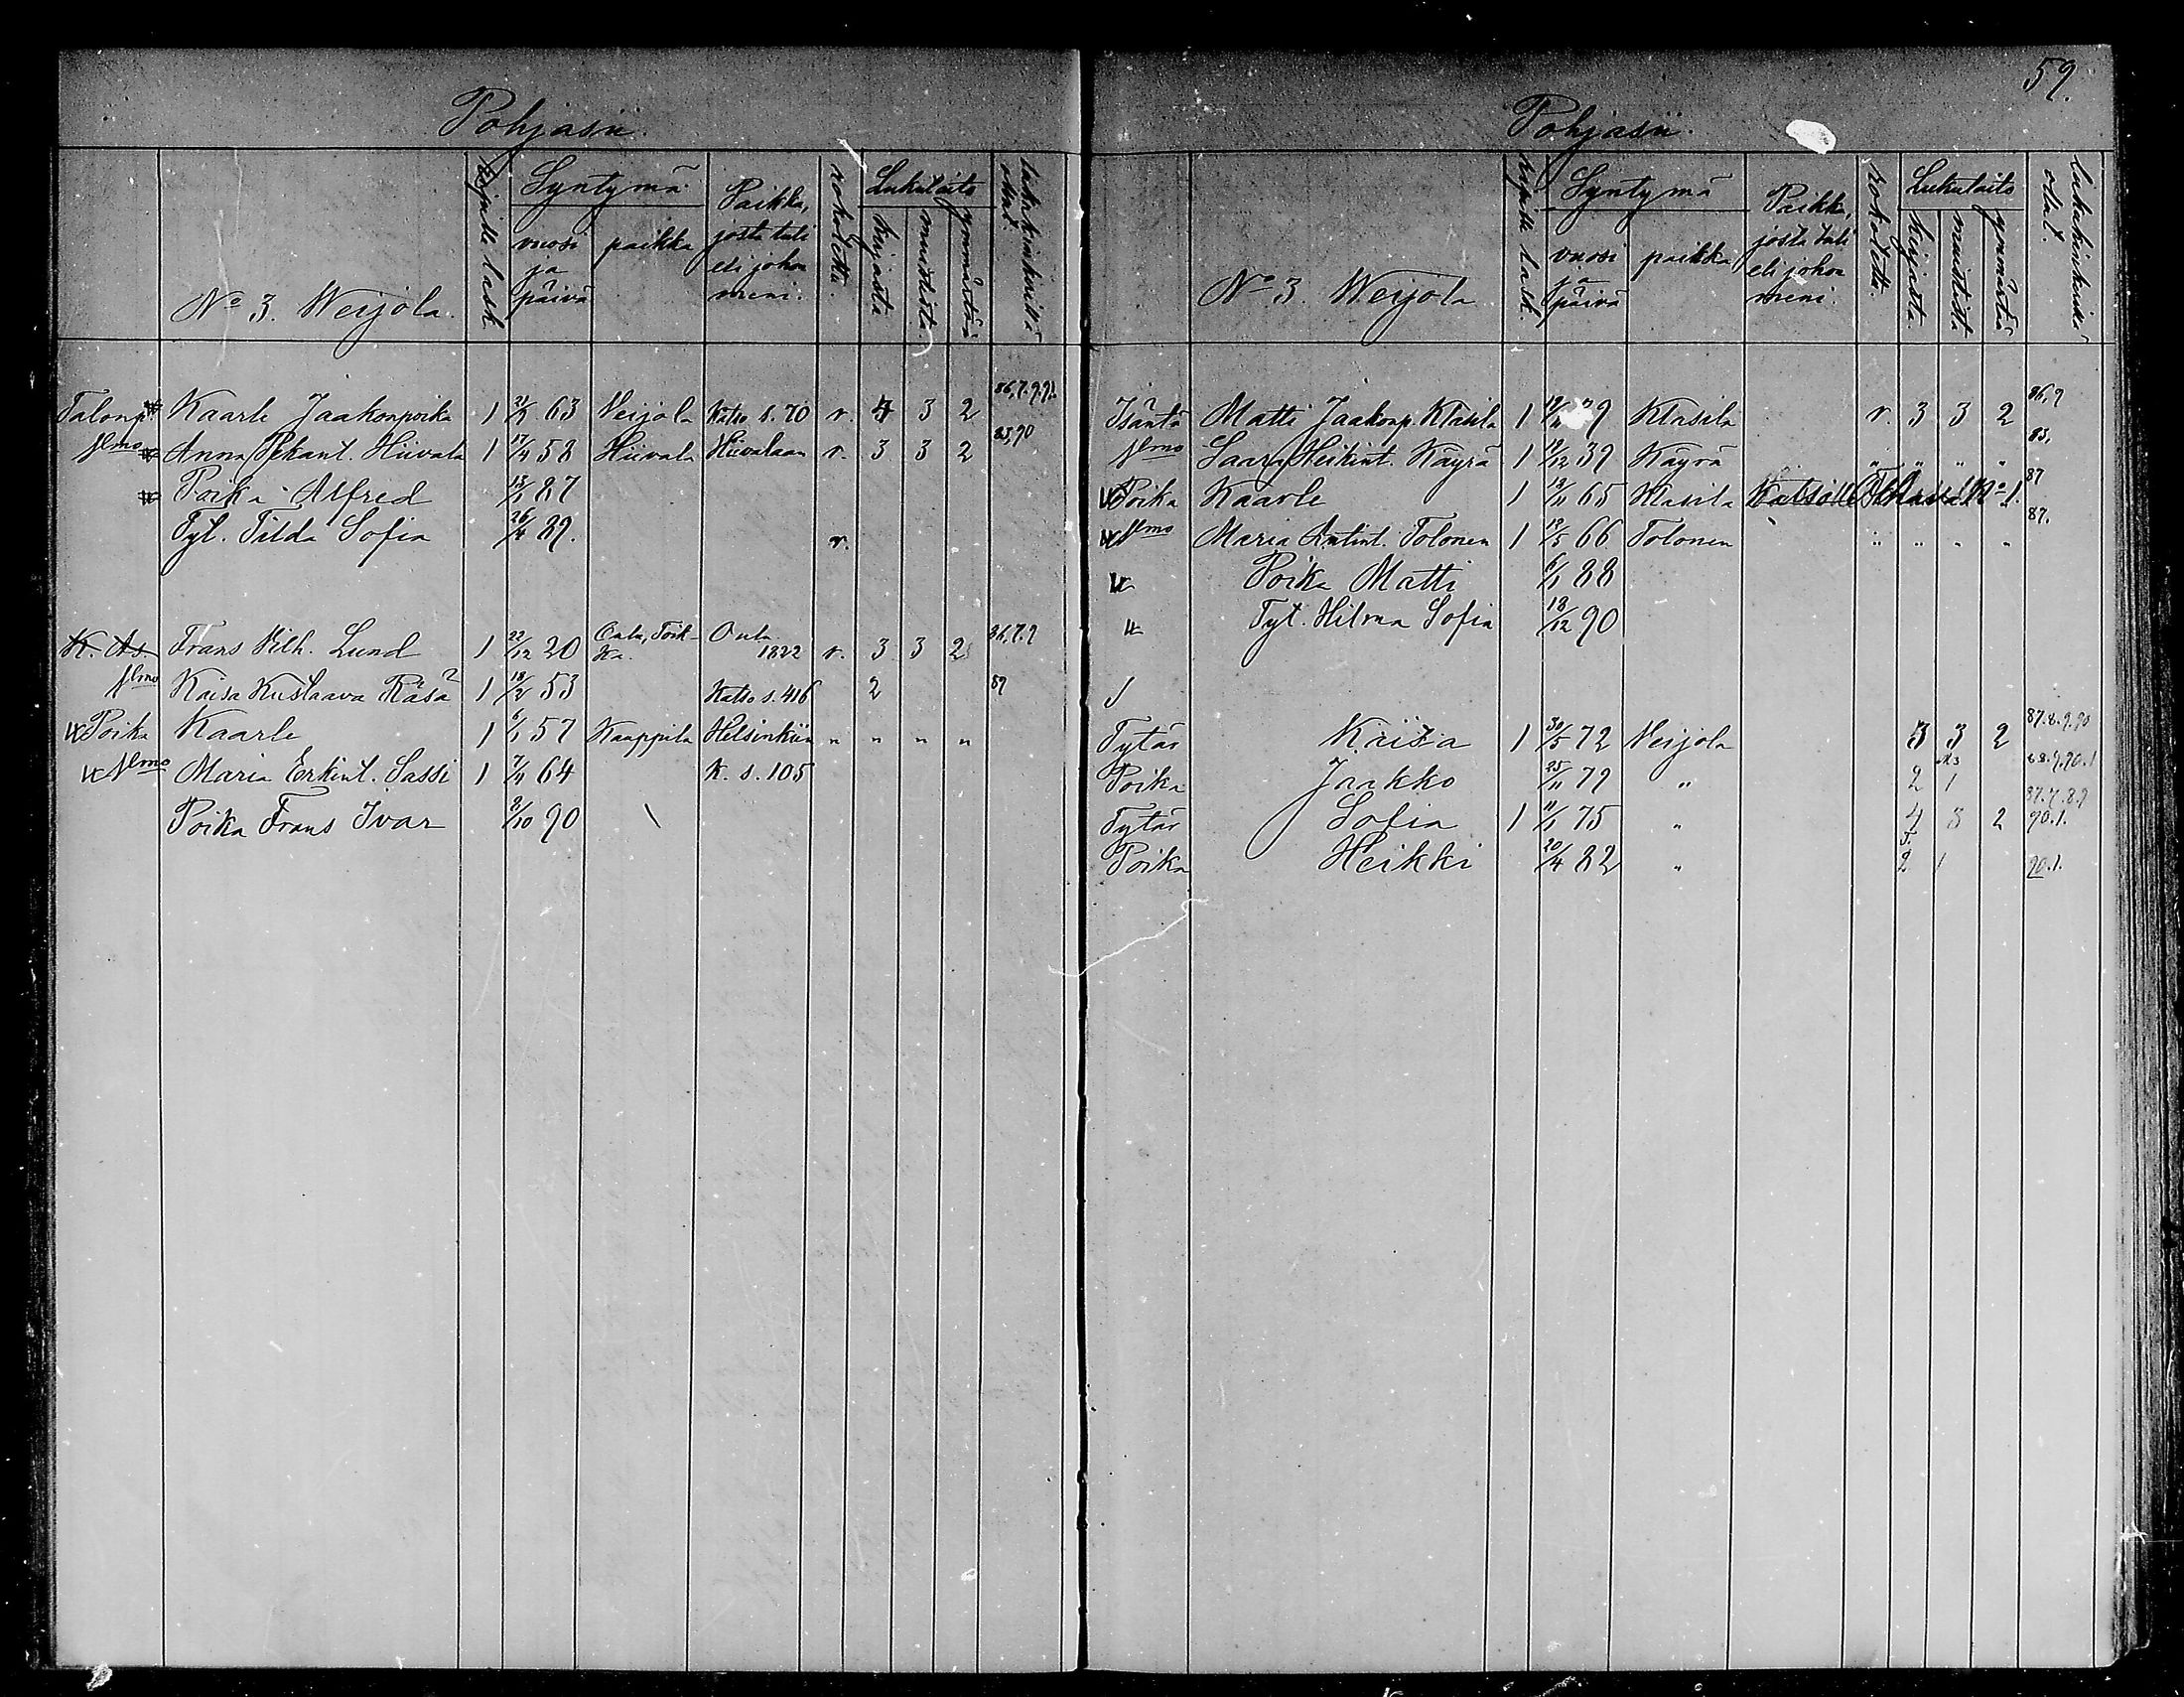 Pohjasii.
Syntymä
Paikka, josta tuli eli johon meni.
rokotettu.
Lukutaito
vuosi ja päivä
paikka
kirjasta.
muistista.
ymmärtää
No 3. Weijola.
Talonp. Kaarle Jaakonpoika 1 63 Veijola Katso s. 70 r. 4 3 2 86,7.9.91.
Anna Pekant. Hiivala 1 17/4 58 Hiivala Hiivalaan r. 3 3 2 85,90
Poika Alfred 87
Tyt. Tilda Sofia 26/4 89. r.
K. As. Frans Vilh. Lund 1 22/12 20 Oulu 1822 r. 3 3 2 86,7.9
Kaisa Kustaava Räsä 1 18/2 53 Katso s. 416 2 89
Poika Kaarle 1 6/1 57 Kaappila Helsinkiin " " " "
Maria Erkint. Sassi 1 64 K. s. 105
Poika Frans Ivar 8/10 90
59.
Pohjasii.
Syntymä
Paikka, josta tuli eli johon meni.
rokotettu.
Lukutaito
vuosi ja päivä
paikka
kirjasta.
muistista
ymmärtää
lukukinkerillä ollut.
No 3. Weijola
Isäntä Matti Jaakonp. Klasila 1 Klasila r. 3 3 2 86,9
Saara Heikint. Käyrä 1 19/12 39 Käyrä " " " " 85,
Poika Kaarle 1 65 Klasila 87
Maria Antint. Tolonen 1 19/5 66 Tolonen " " " " 87.
Poika Matti 6/1 88
Tyt. Hilma Sofia 18/12 90
Tytär Kaisa 1 30/5 72 Veijola 3 3 2 87.8.9.90
Poika Jaakko 25/11 79 " 2 1 88.9.90.1
Tytär Sofia 1 11/1 75 " 4 3 2 87.7.8.9 90.1.
Poika Heikki 20/4 82 " 2 1 90.1.